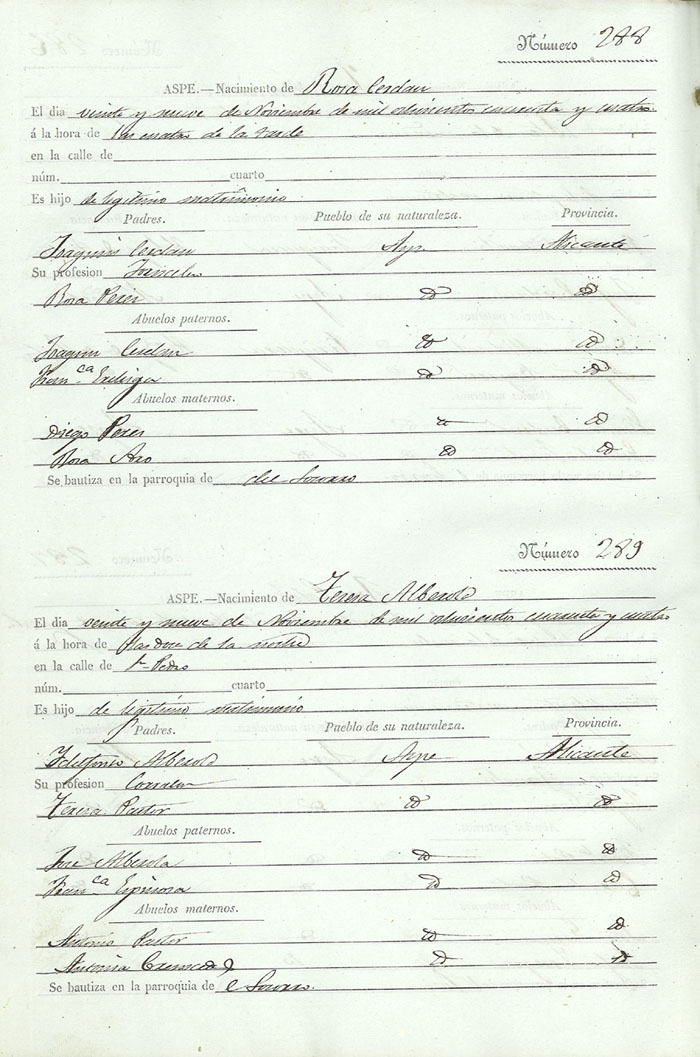 Número 288
ASPE.—Nacimiento de Rosa Cerdan
El dia veinte y nueve de Noviembre de mil ochocientos cuarenta y cuatro
á la hora de las cuatro de la tarde
en la calle de
núm. cuarto
Es hijo de legitimo matrimonio
Padres. Pueblo de su naturaleza. Provincia.
Joaquin Cerdan Aspe Alicante
Su profesion
Rosa Perez id id
Abuelos paternos.
Joaquin Cerdan id id
Franca id id
Abuelos maternos.
Diego Perez id id
Rosa id id
Se bautiza en la parroquia de del Socorro
Número 289
ASPE.—Nacimiento de Teresa Alberola
El dia veinte y nueve de Noviembre de mil ochocientos cuarenta y cuatro
á la hora de las doce de la noche
en la calle de Sn Pedro
núm. cuarto
Es hijo de legitimo matrimonio
Padres. Pueblo de su naturaleza. Provincia.
Ildefonso Alberola Aspe Alicante
Su profesion
Teresa Pastor id id
Abuelos paternos.
Jose Alberola id id
Franca Espinosa id id
Abuelos maternos.
Antonio Pastor id id
Antonia id id
Se bautiza en la parroquia de el Socorro.